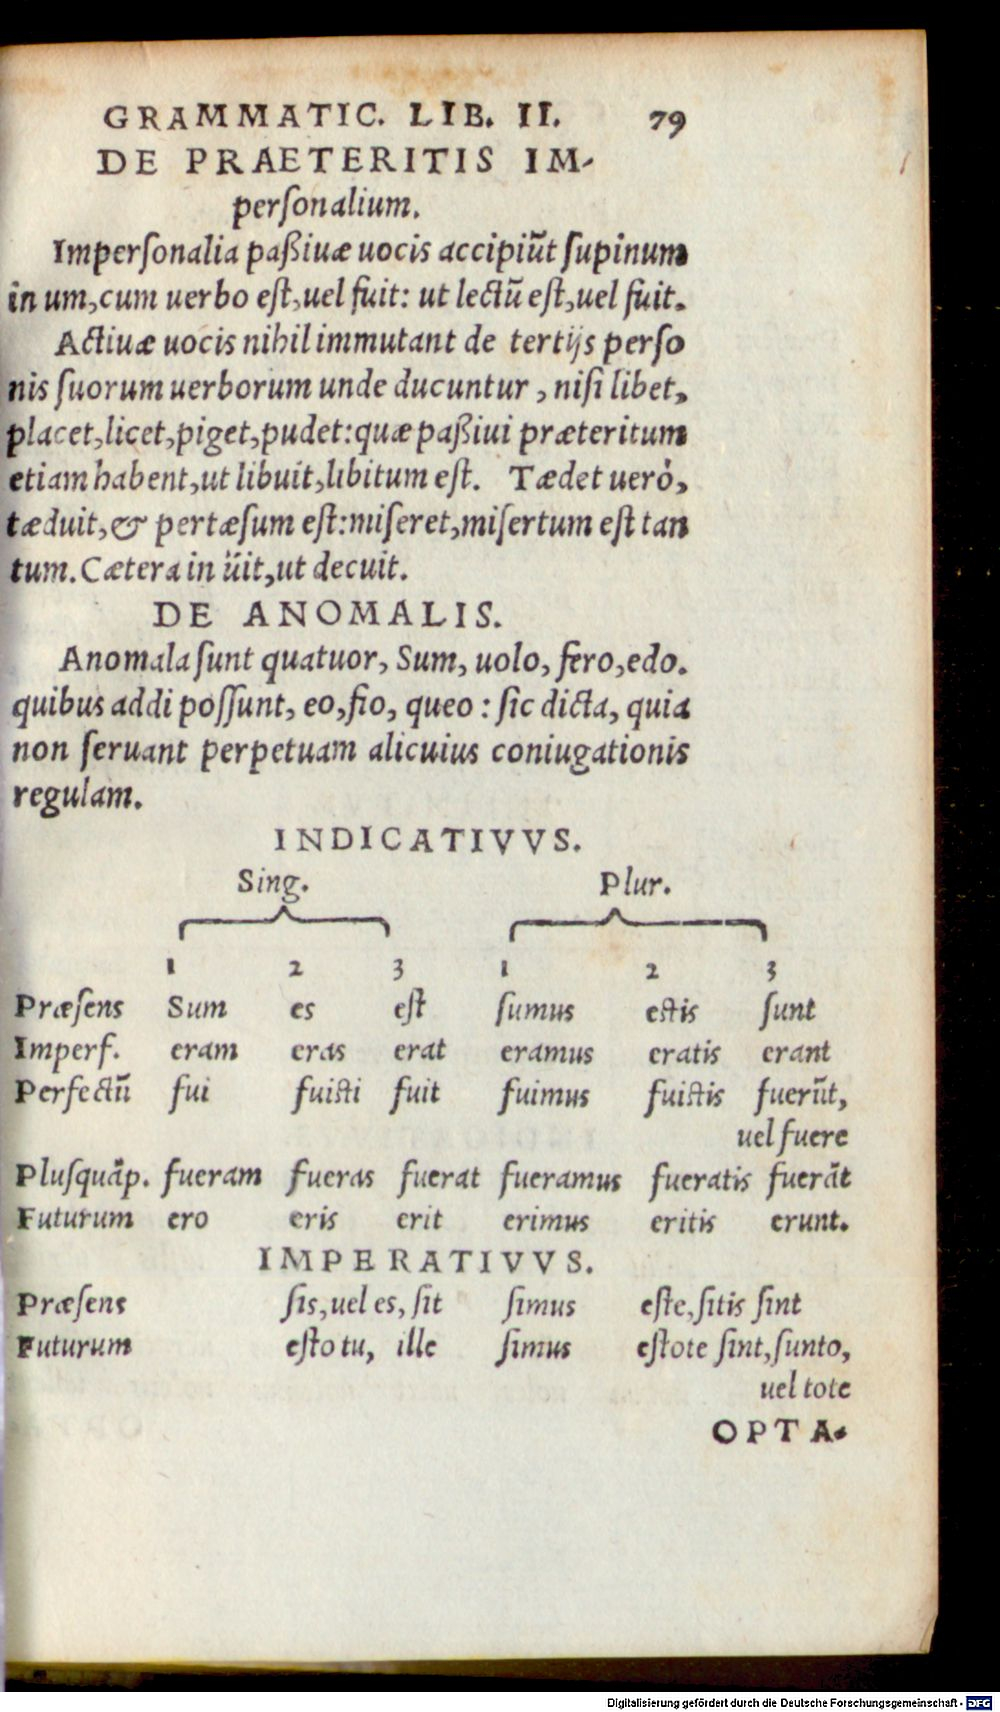 GRAMMATIC. LIB. II. 79
DE PRAETERITIS IM-
perſonalium.
Imperſonalia paßiuæ uocis accipiūt ſupinum
in um, cum uerbo eſt, uel fuit: ut lectū eſt, uel fuit.
Actiuæ uocis nihil immutant de tertijs perſo
nis ſuorum uerborum unde ducuntur, niſi libet,
placet, licet, piget, pudet: quæ paßiui præteritum
etiam habent, ut libuit, libitum eſt. Tædet uerò,
tæduit, & pertæſum eſt: miſeret, miſertum eſt tan
tum. Cætera in üit, ut decuit.
DE ANOMALIS.
Anomala ſunt quatuor, Sum, uolo, fero, edo.
quibus addi poſſunt, eo, fio, queo: ſic dicta, quia
non ſeruant perpetuam alicuius coniugationis
regulam.
INDICATIVVS.
Sing. Plur.
1 2 3 1 2 3
Præſens Sum es eſt ſumus eſtis ſunt
Imperf. eram eras erat eramus eratis erant
Perfectū fui fuiſti fuit fuimus fuiſtis fuerūt,
uel fuere
Pluſquāp. fueram fueras fuerat fueramus fueratis fuerāt
Futurum ero eris erit erimus eritis erunt.
IMPERATIVVS.
Præſens ſis, uel es, ſit ſimus eſte, ſitis ſint
Futurum eſto tu, ille ſimus eſtote ſint, ſunto,
uel tote
OPTA-
Digitalisierung gefördert durch die Deutsche Forschungsgemeinschaft - DFG